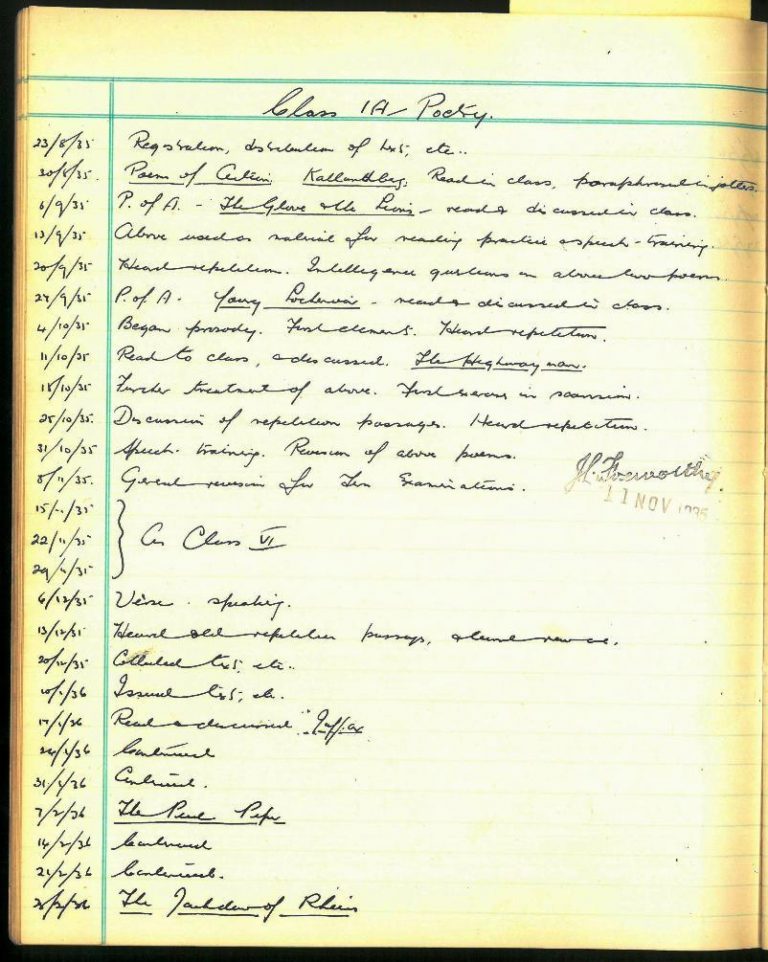 Class 1A Poetry.
23/8/35 Registration, distribution of txts, etc..
30/8/35. Poem of Action, Kallundborg, Read in class, paraphrased in jotters.
6/9/35 P. of A. - The Glove & the Lions - read & discussed in class.
13/9/35 Above used as material for reading practice & speech-training.
20/9/35 Heard repetition. Intelligence questions on above two poems.
27/9/35 P. of A. Young Lochinvar - read & discussed in class.
4/10/35 Began prosody. First element. Heard repetition.
11/10/35 Read to class, & discussed. The Highwayman.
18/10/35 Further treatment of above. First exercise in scansion.
25/10/35. Discussion of repetition passages. Heard repetition.
31/10/35 Speech-training. Revision of above poems.
8/11/35. General revision for Term Examinations.
11 NOV 1935
15/11/35
22/11/35 As Class VI
29/11/35
6/12/35 Verse-speaking.
13/12/35 Heard old repetition passages, & learned new one.
20/12/35 Collected txts, etc..
10/1/36 Issued txts, etc.
17/1/36 Read & discussed "Jaffar
24/1/36 Continued
31/1/36 Continued.
7/2/36 The Pied Piper
14/2/36 Continued
21/2/36 Continued.
28/2/36 The Jackdaw of Rheims